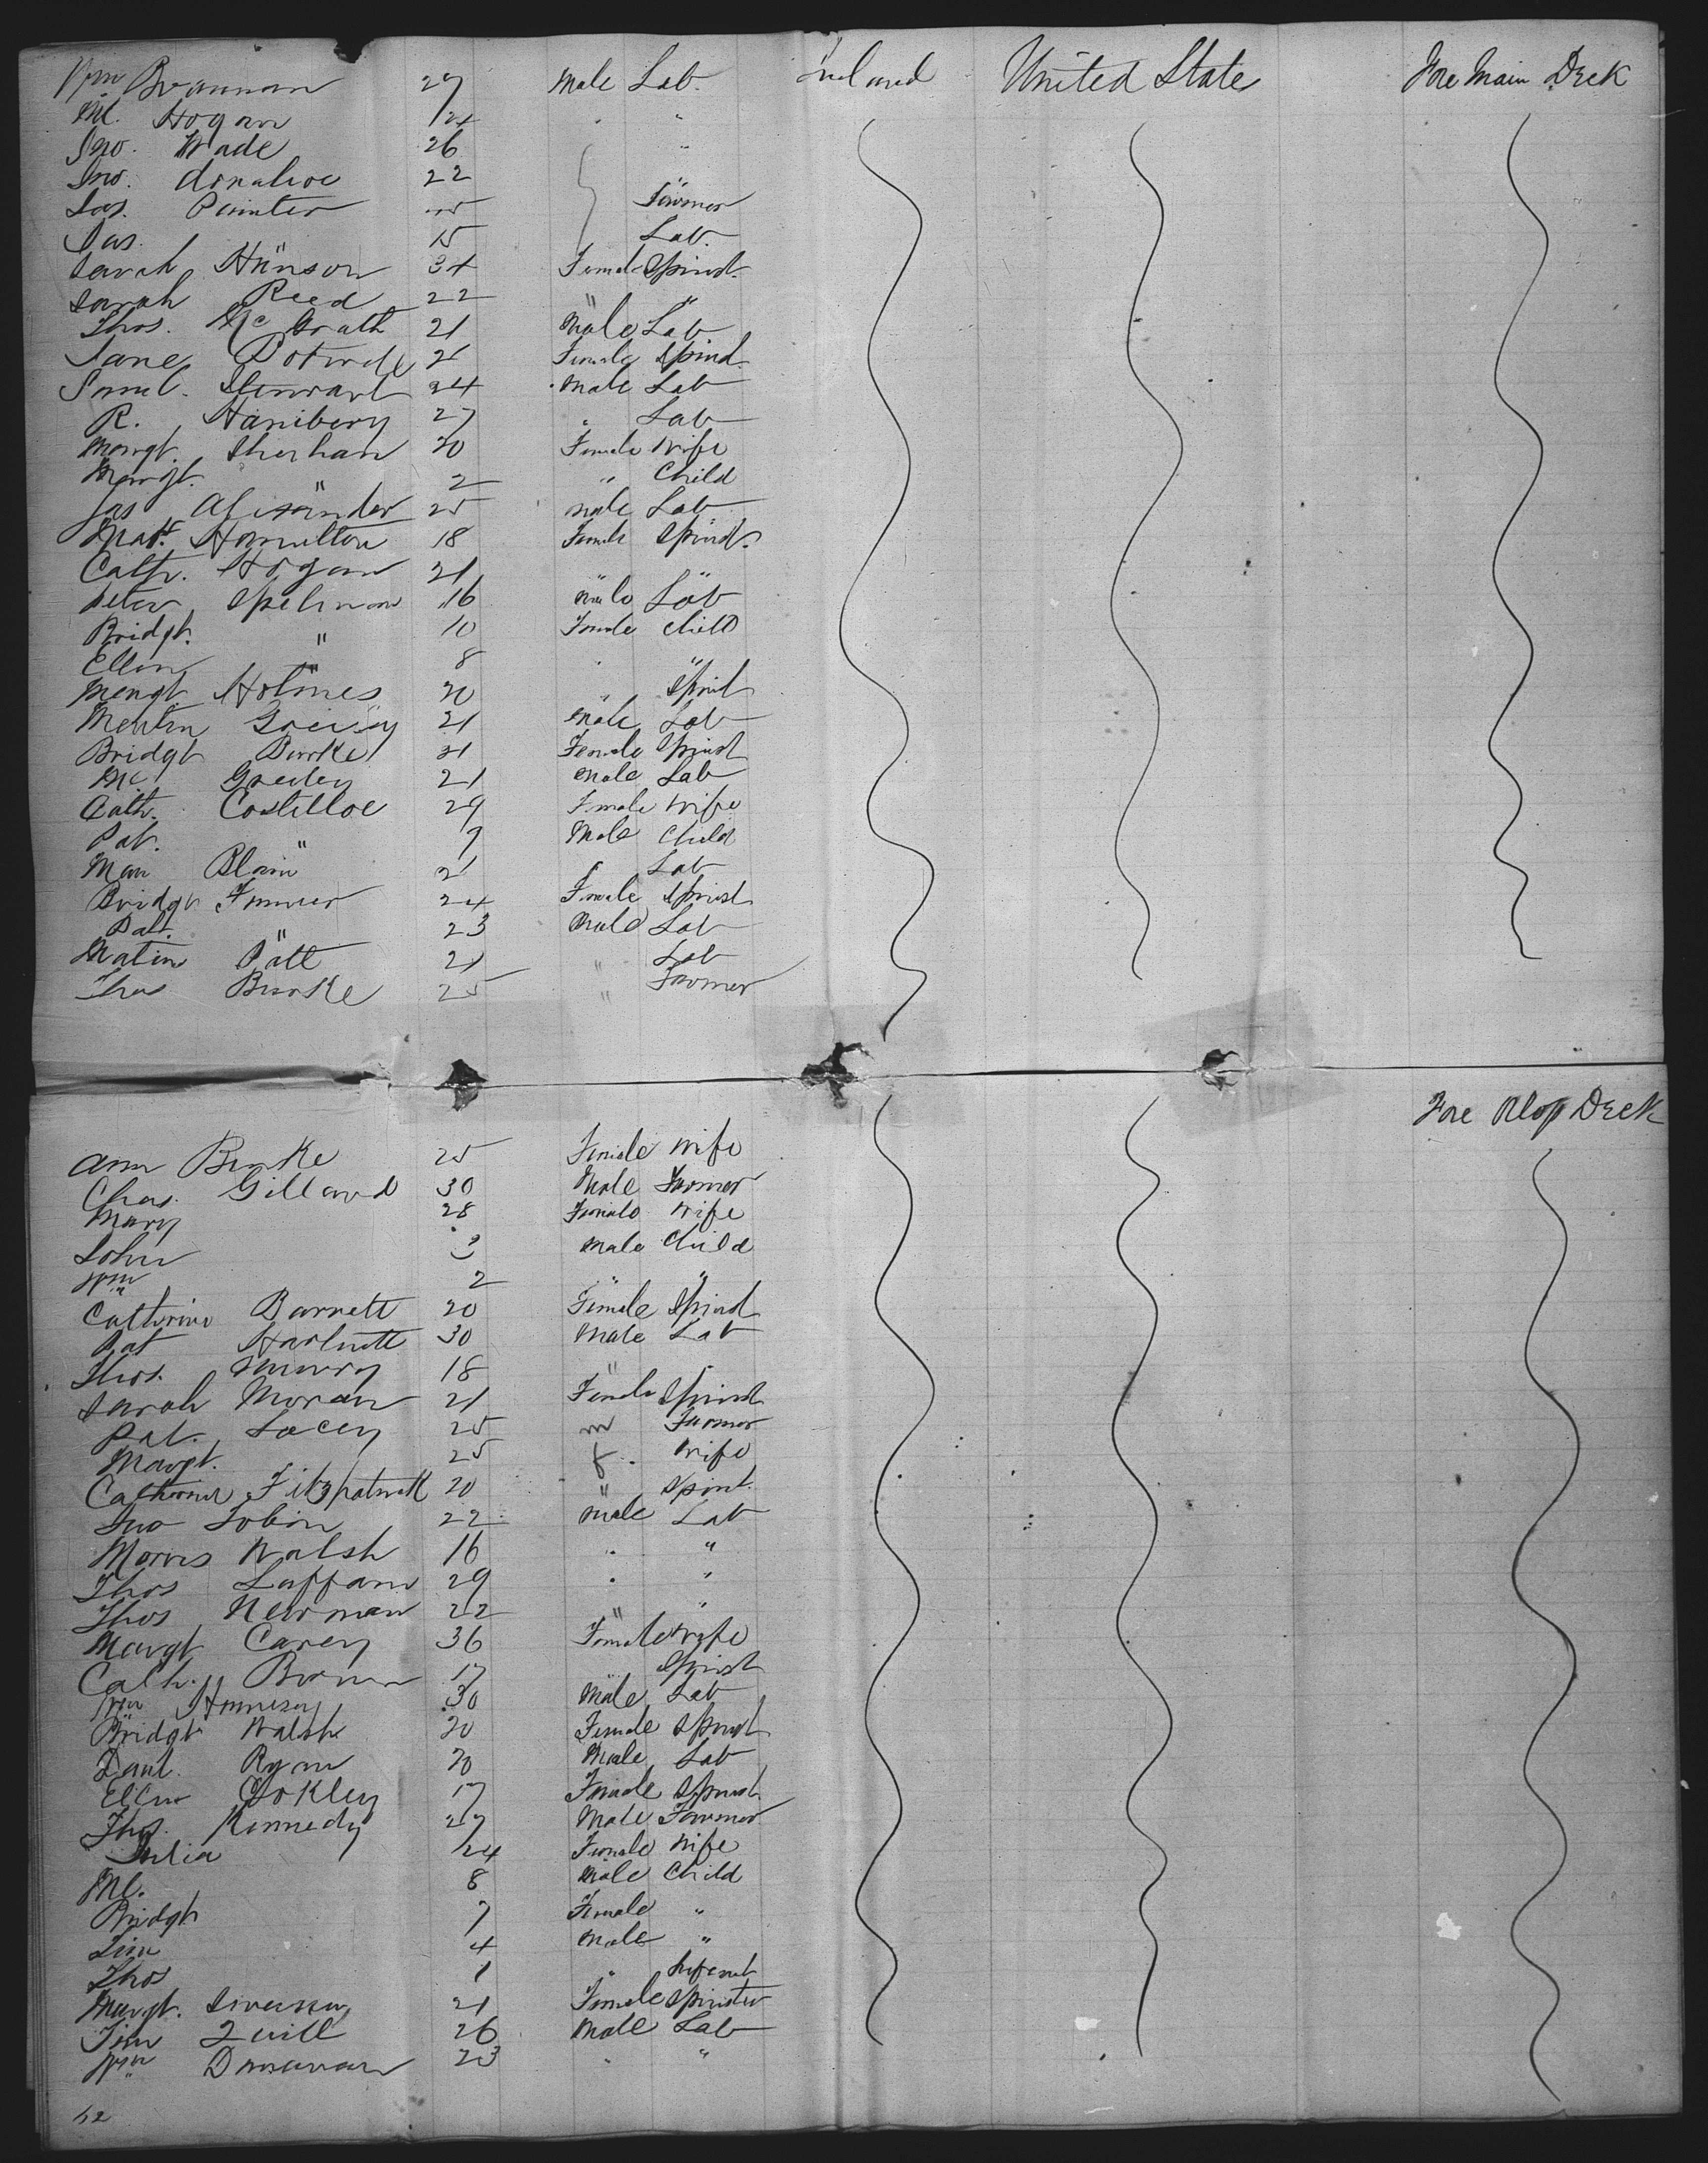 Wm Brannan 27 Male Lab. Ireland United State Fore Main Deck
Ml. Hogan 24 " "
Jno. Wade 26 "
Jno. donahoe 22 "
Jas. Painter Farmer
Jas. " 15 Lab.
Sarah Hanson 34 Female Spinst.
Sarah Reed 22 " "
Thos. McGrath 21 Male Lab
Jane 21 Female Spinst
Saml. Stewart 24 Male Lab
R. 27 " Lab
Margt. Sheehan 30 Female Wife
Margt. " 2 " Child
Jas Alexander 25 male Lab
Mat. Hamilton 18 Female Spinst.
Cath. Hogan 21 " "
Peter Spelman 16 Male Lab
Bridgt. " 10 Female Child
Ellen " 8 " "
Margt Holmes 20 " Spinst
Martin 21 Male Lab
Bridgt Burke 21 Female Spinst
Greeley 21 Male Lab
Cath. Costilloe 29 Female Wife
Pat. " 9 Male Child
Blain 21 " Lab
Bridgt 24 Female Spinst
Pat. " 23 Male Lab
Matin Patt 21 " Lab
Thos Burke 25 " Farmer
Fore Olop Deck
Ann Burke 25 Female Wife
Chas. Gillard 30 Male Farmer
Mary 28 Female Wife
John 3 Male Child
Wm 2 " "
Catherine Barrett 20 Female Spinst
Pat Hartnett 30 Male Lab
Thos. Murry 18 " "
Sarah Moran 21 Female Spinst
Pat. Lacey 25 m Farmer
Margt. 25 f. Wife
Catherine Fitzpatrick 20 " Spinst.
Jno Tobin 22 Male Lab
Morris Walsh 16 " "
Thos Laffan 29 " "
Thos Newman 22 " "
Margt Carey 36 Female Wife
Cath. 17 Spinst
Wm Hennesy 30 Male Lab
Bridgt Walsh 20 Female Spinst
Danl. Ryan 20 Male Lab
Ellen 17 Female Spinst.
Thos. Kennedy 27 Male Farmer
Julia 24 Female Wife
Ml. 8 Male Child
Bridgt 7 Female "
Tim 4 Male "
Thos 1 " Infant
Margt. 21 Female Spinster
Tim Quill 26 Male Lab
Wm Donavan 23 " "
62